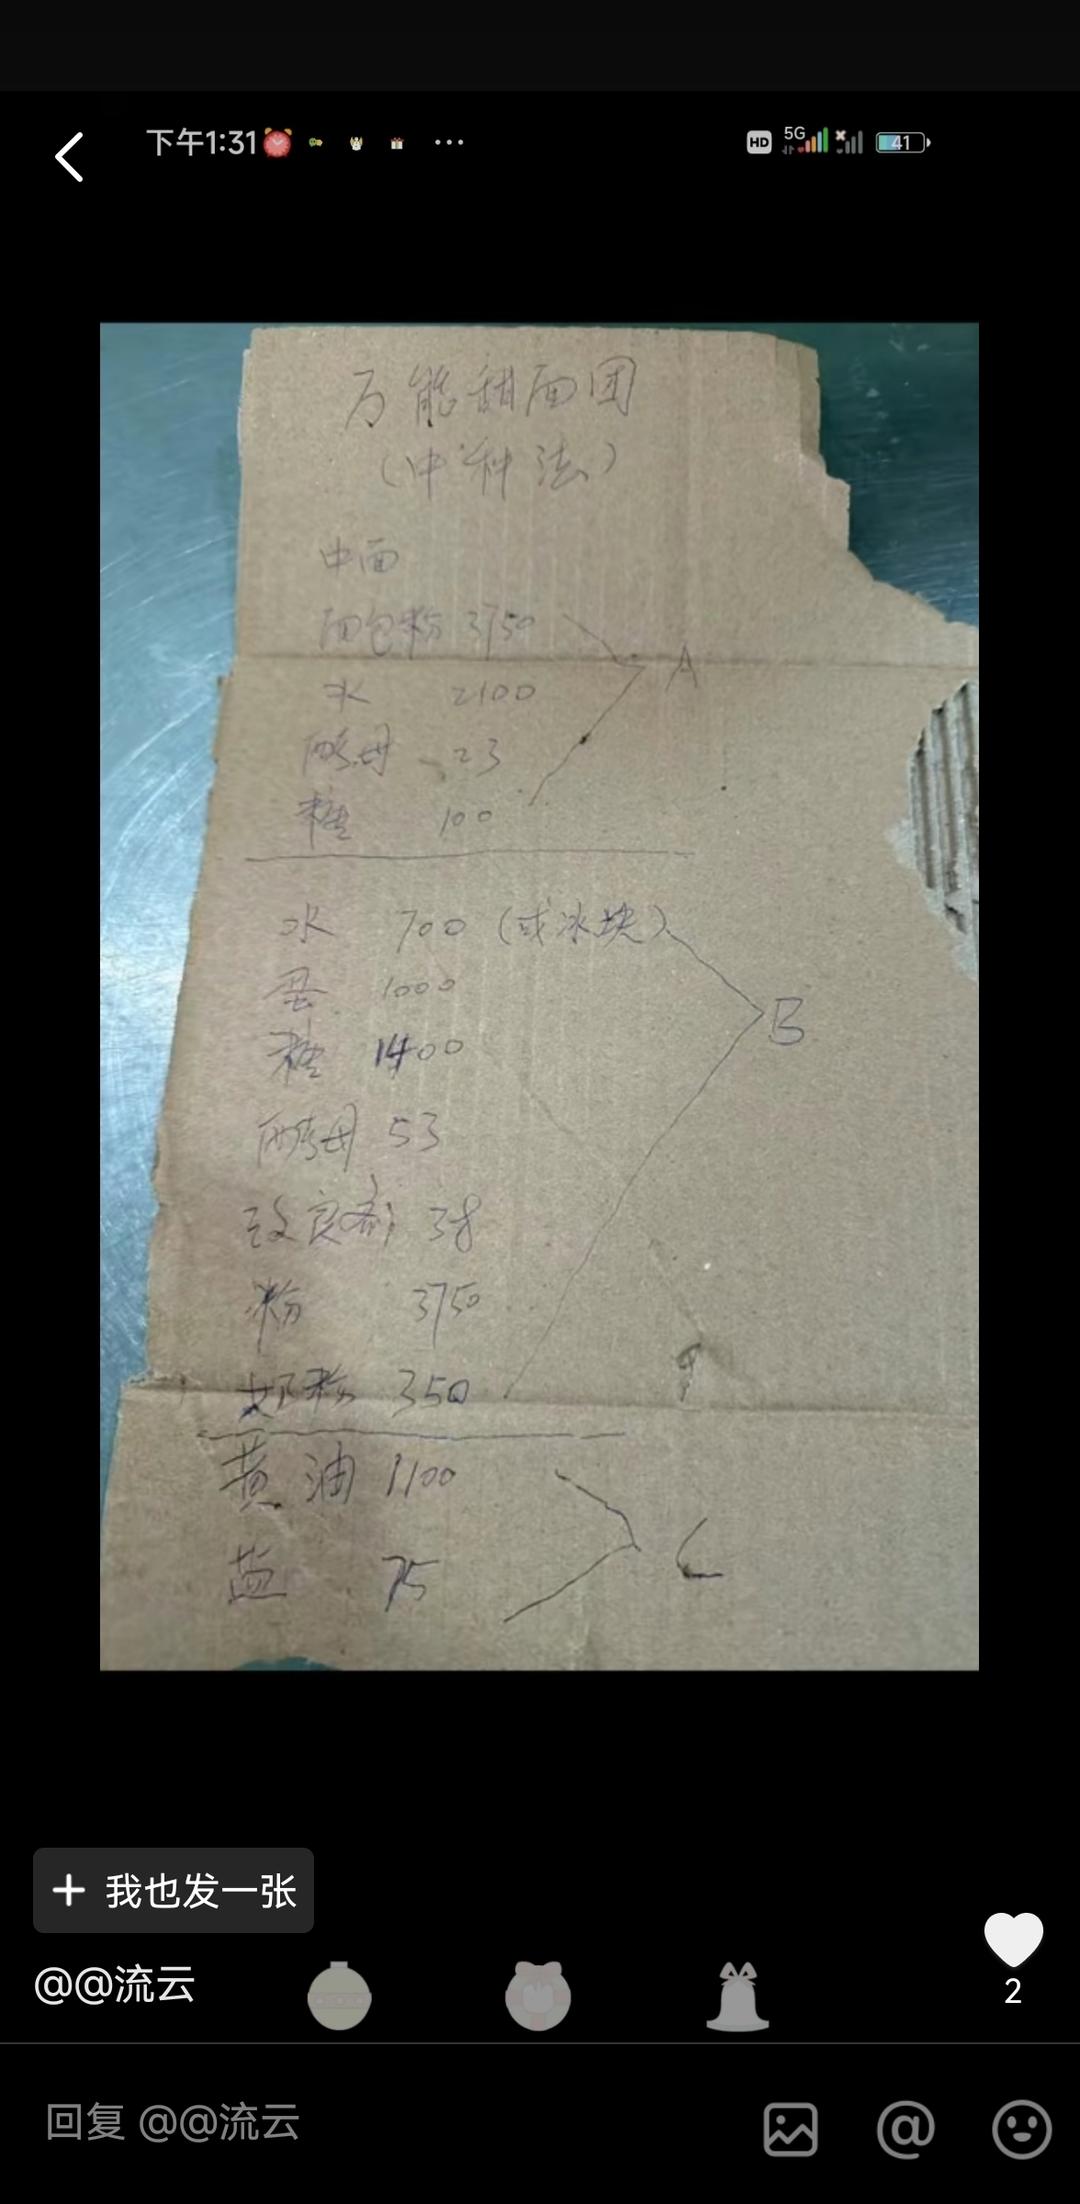 下午1:31
HD 5G 41
万能甜面团
(中种法)
中面
面包粉 3750
A
水 2100
酵母 23
糖 100
水 700 (或冰块)
蛋 1000
B
糖 1400
酵母 53
改良剂 38
粉 3750
奶粉 350
黄油 1100
C
盐 75
+ 我也发一张
@@流云
2
回复 @@流云